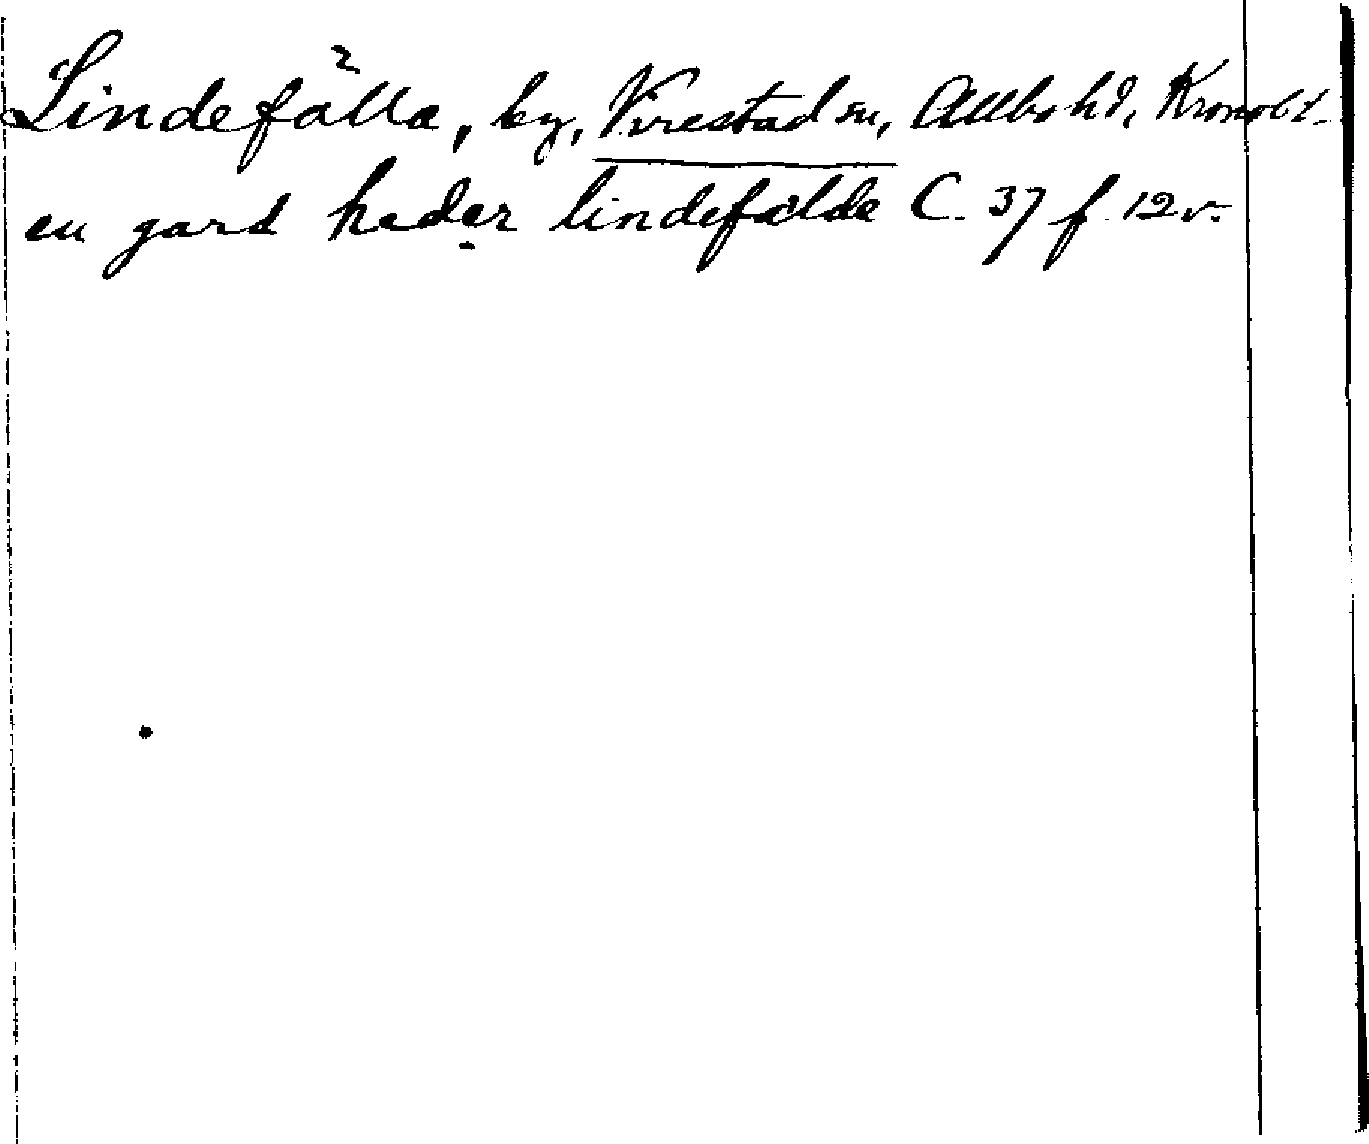 Lindefälla, by, Virestad sn, Allbo hd, Kronobl.
en gard heder lindefælde C 37 f. 12 v.